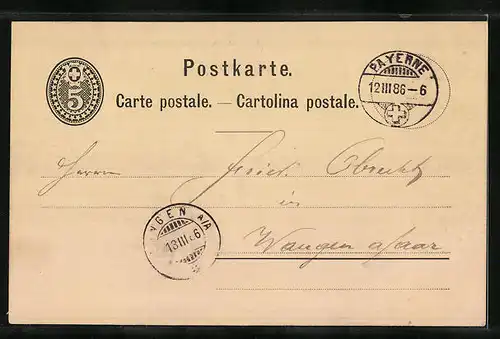 5
Postkarte.
Carte postale. — Cartolina postale.
PAYERNE
12 III 86 – 6
Herrn Obrecht
in
Wangen a/Aar
WANGEN A/A
13 III 86